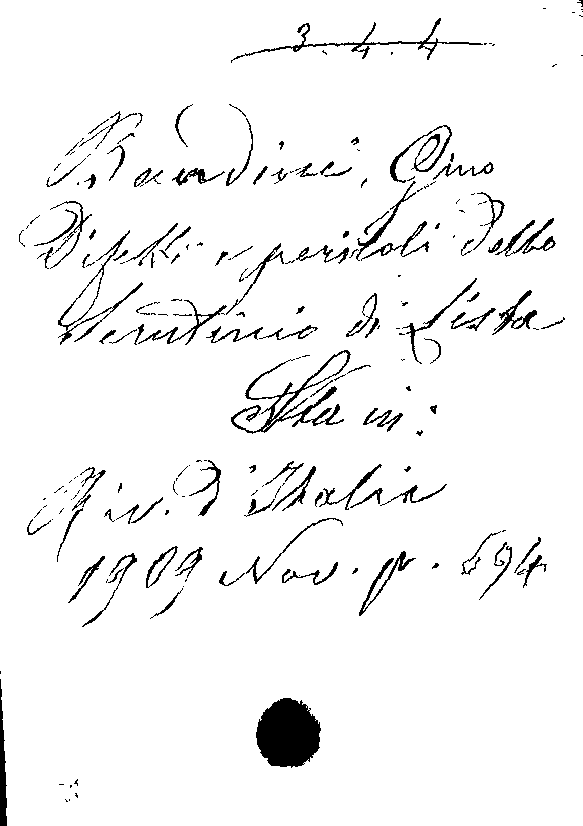 3. 4. 4
Bandini, Gino
Difetti e pericoli dello
Scrutinio di Lista
Sta in:
Riv. d'Italia
1909 Nov. p. 694